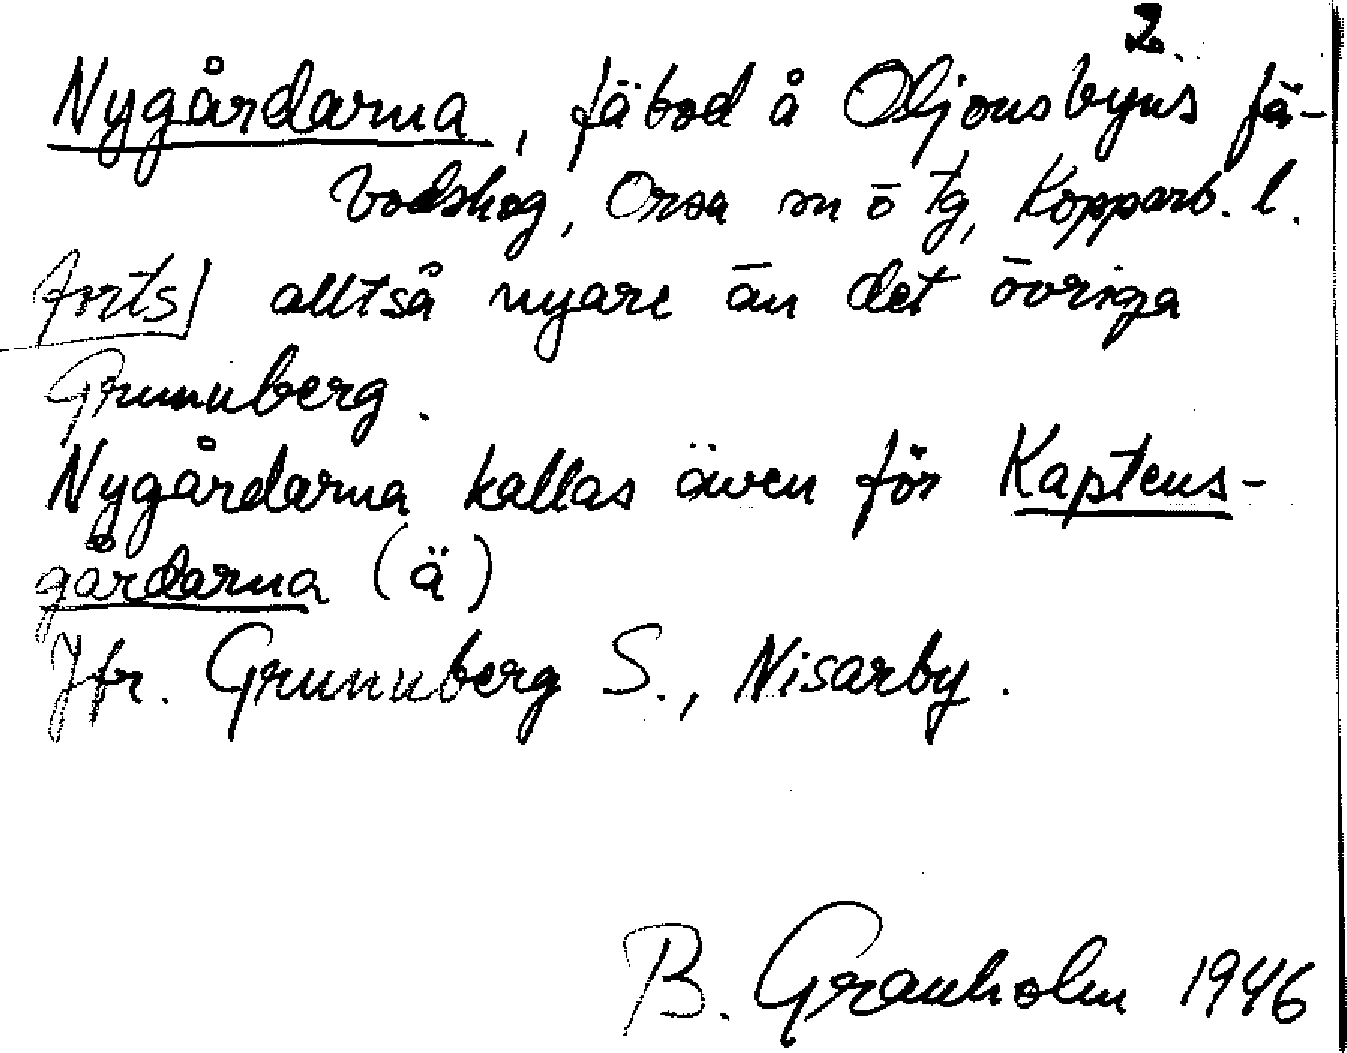 2.
Nygårdarna, fäbod å Oljonsbyns fä-
bodskog, Orsa sn ö tg, Kopparb. l.
forts] alltså nyare än det övriga
Grunuberg.
Nygårdarna kallas även för Kaptens-
gårdarna (ä)
Jfr. Grunuberg S., Nisarby.
B. Granholm 1946